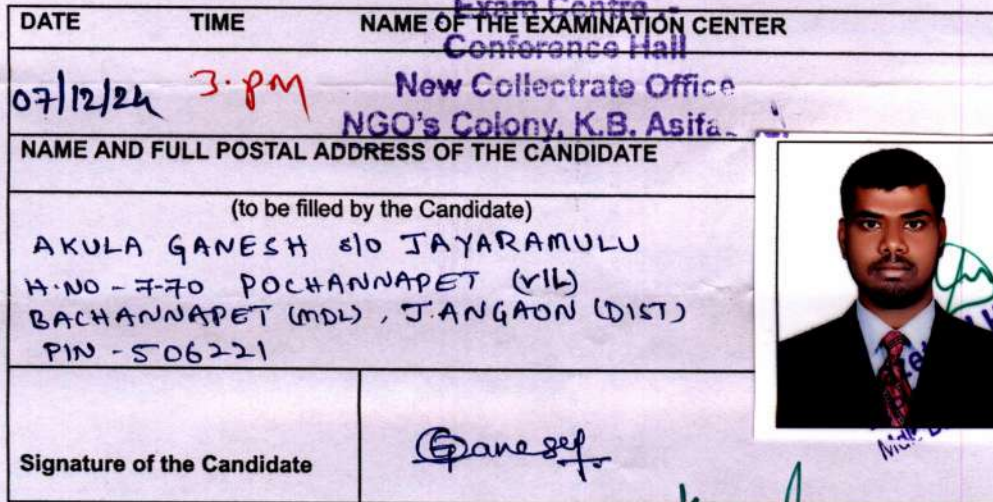 Exam Centre
DATE TIME NAME OF THE EXAMINATION CENTER
Conference Hall
07/12/24 3.PM New Collectrate Office
NGO's Colony, K.B.
NAME AND FULL POSTAL ADDRESS OF THE CANDIDATE
(to be filled by the Candidate)
AKULA GANESH S/O JAYARAMULU
H.NO - 7-70 POCHANNAPET (VIL)
BACHANNAPET (MDL), JANGAON (DIST)
PIN - 506221
Signature of the Candidate Ganesh